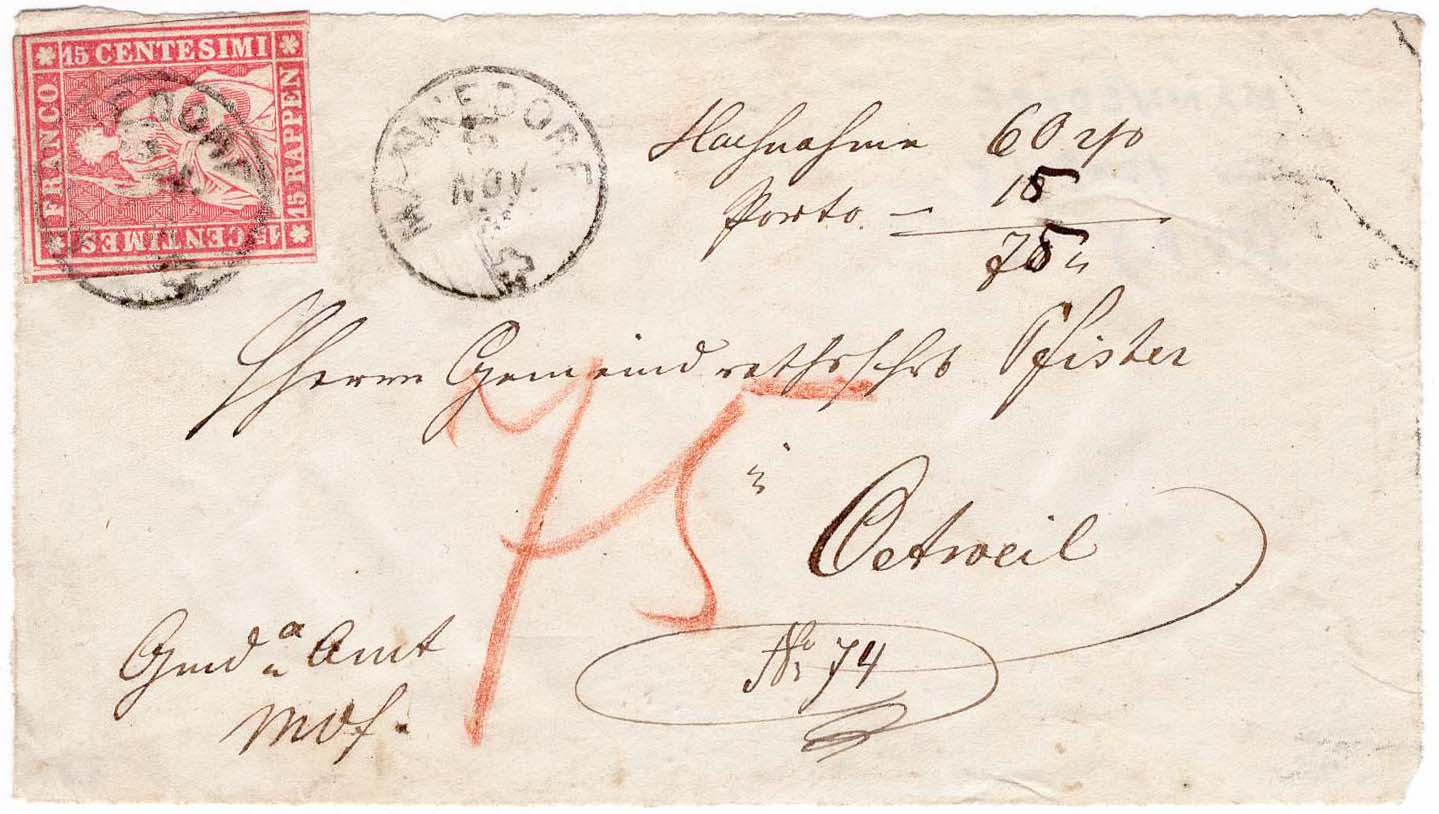 15 CENTESIMI
FRANCO
15 RAPPEN
15 CENTIMES
MÄNNEDORF
NOV.
Nachnahme 60 rp
Porto. – 15
75 "
Hherrn Gemeindrathsschrb Pfister
in
Oetweil
75
Gmd a Amt
Mdf.
No 74